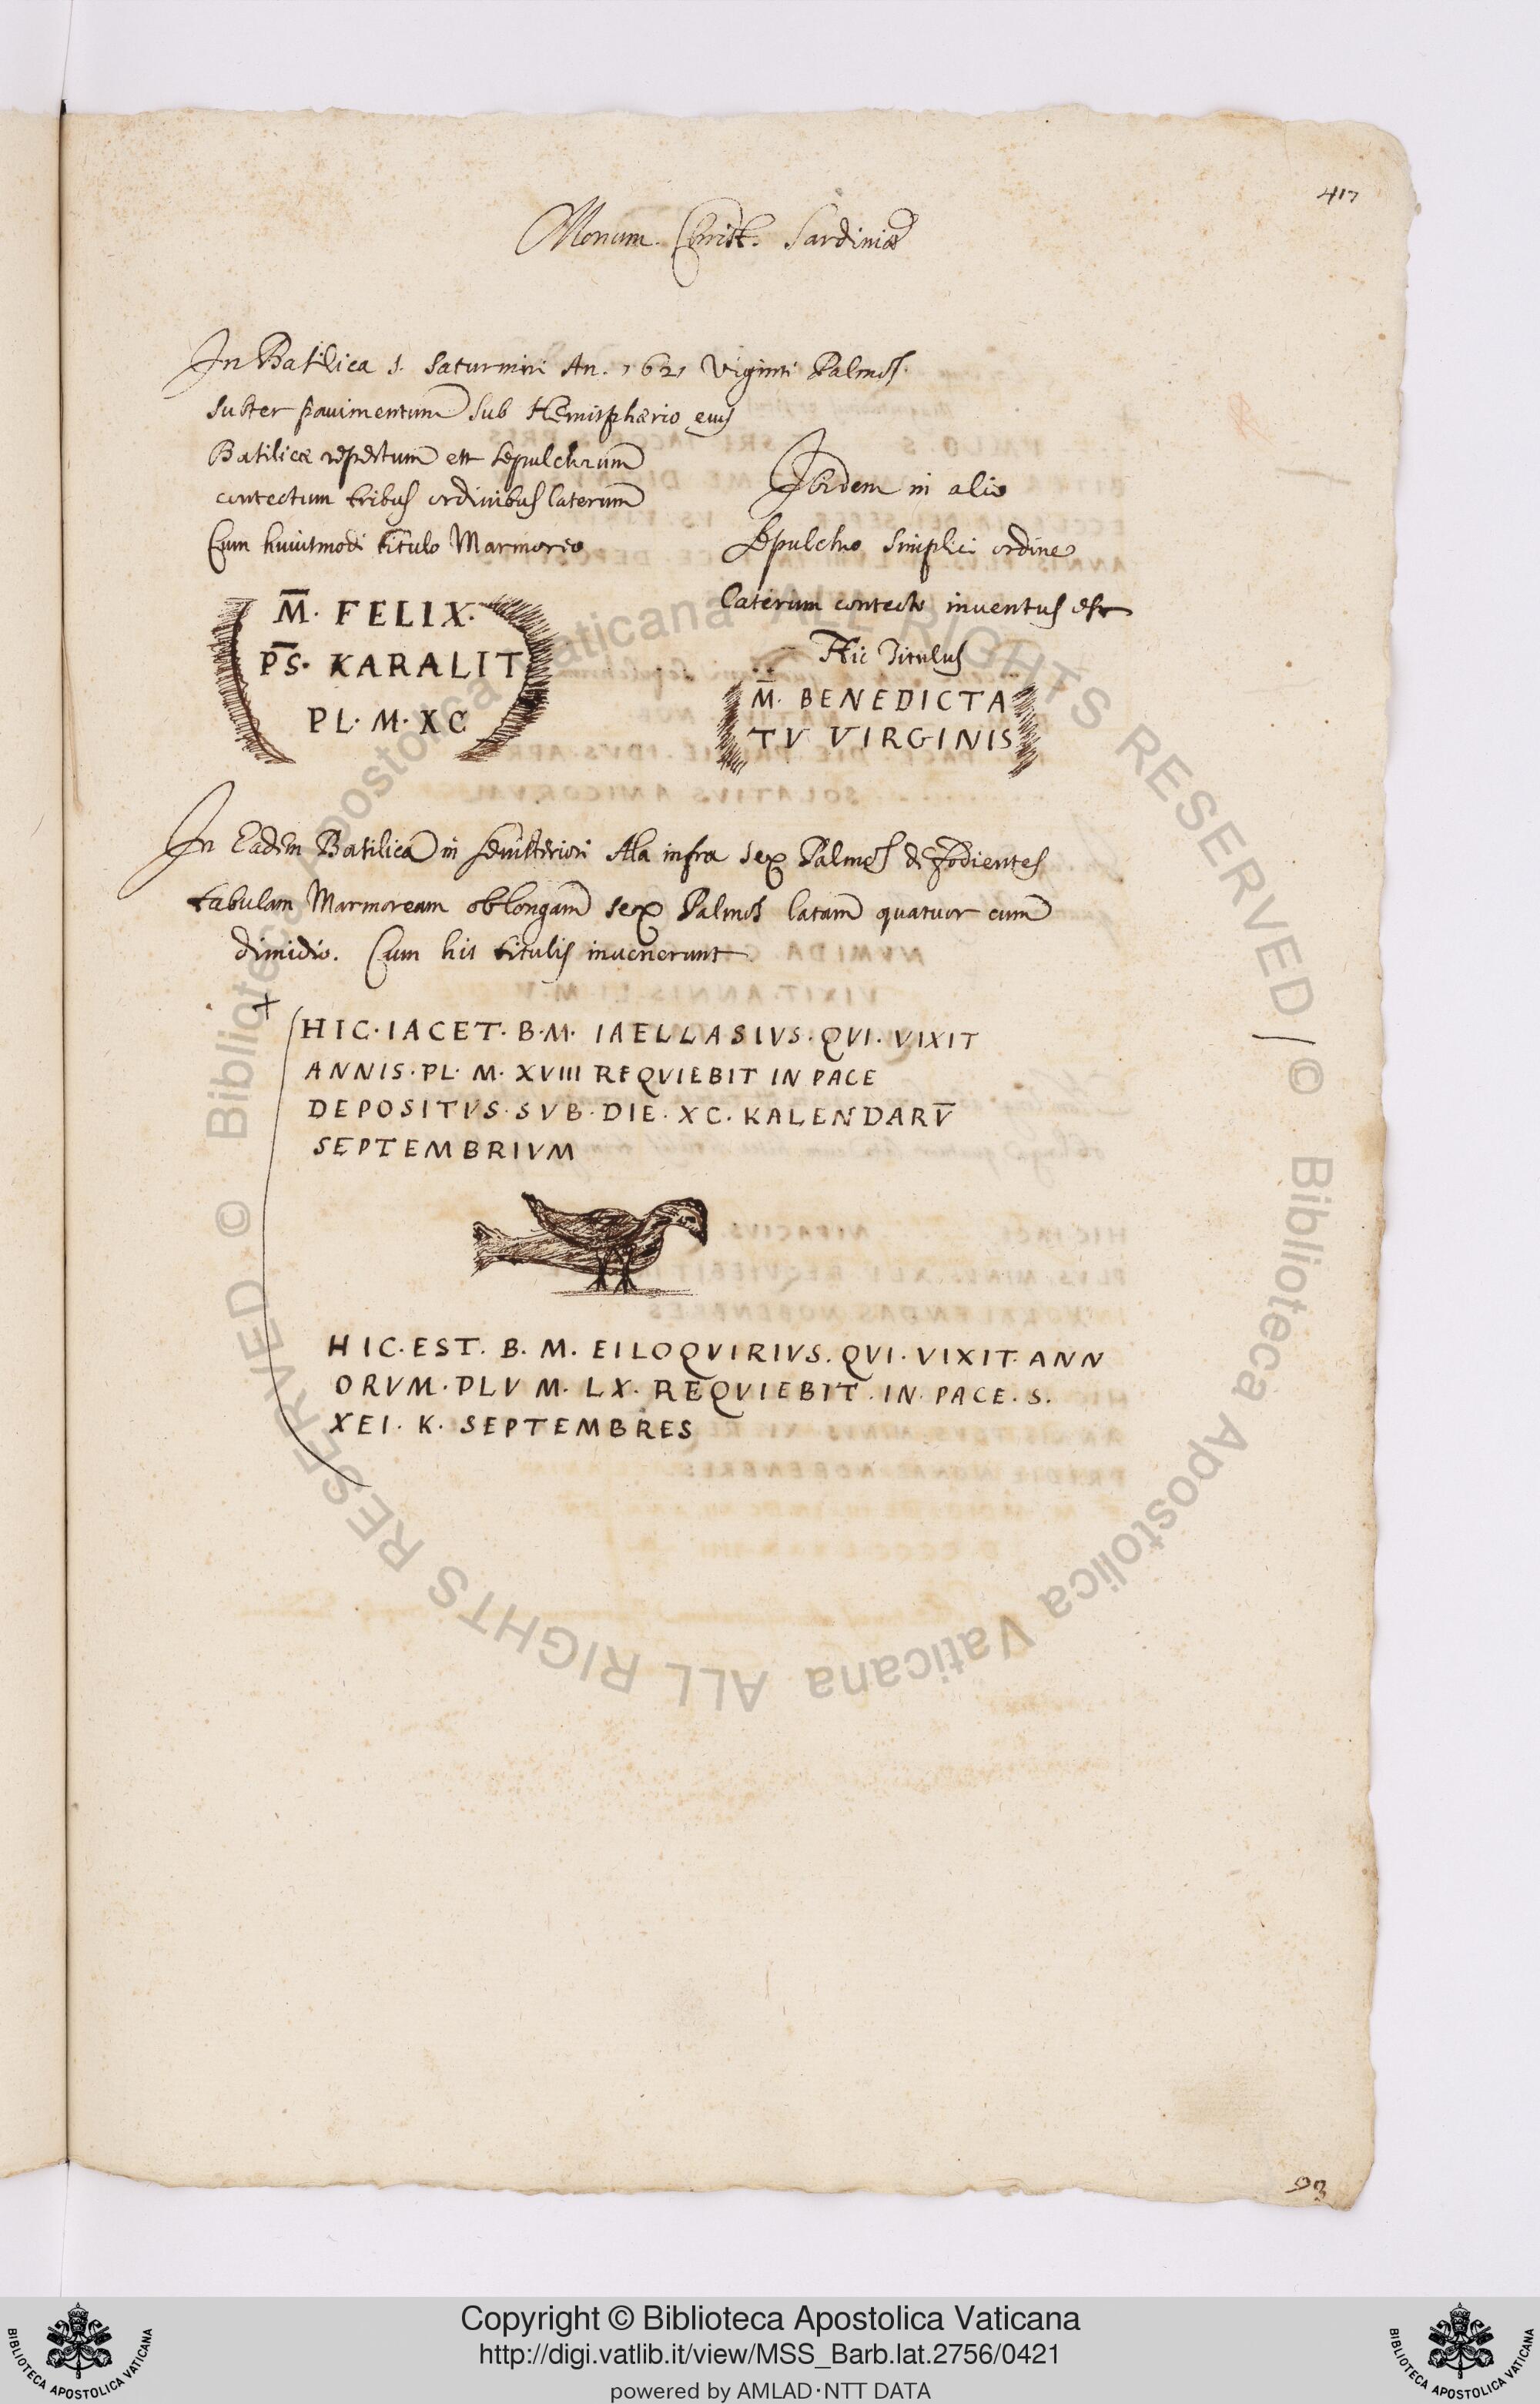 417
Monum. Christ. Sardiniæ
In Basilica S. Saturnini An. 1621 Viginti Palmos
subter pavimentum sub Hemisphærio eius
Basilicæ repertum est sepulchrum
contectum tribus ordinibus laterum
Cum huiusmodi titulo Marmoreo
M̅. FELIX.
P̅S. KARALIT
PL. M. XC
Ibidem in alio
sepulchro simplici ordine
laterum contecto inventus est
Hic Titulus
M̅. BENEDICTA
TV VIRGINIS
In Eadem Basilica in sinisteriori Ala infra sex Palmos defodientes
tabulam Marmoream oblongam sex Palmos latam quatuor cum
dimidio. Cum his titulis invenerunt
+
HIC·IACET·B·M· IAELLASIVS·QVI·VIXIT
ANNIS·PL·M·XVIII REQVIEBIT IN PACE
DEPOSITVS·SVB·DIE·XC·KALENDARV̅
SEPTEMBRIVM
HIC·EST. B. M. EILOQVIRIVS. QVI·VIXIT·ANN
ORVM·PLV M·LX·REQVIEBIT·IN·PACE·S.
XEI. K. SEPTEMBRES
93
© Biblioteca Apostolica Vaticana ALL RIGHTS RESERVED / © Biblioteca Apostolica Vaticana ALL RIGHTS RESERVED
BIBLIOTECA APOSTOLICA VATICANA
Copyright © Biblioteca Apostolica Vaticana
http://digi.vatlib.it/view/MSS_Barb.lat.2756/0421
powered by AMLAD·NTT DATA
BIBLIOTECA APOSTOLICA VATICANA